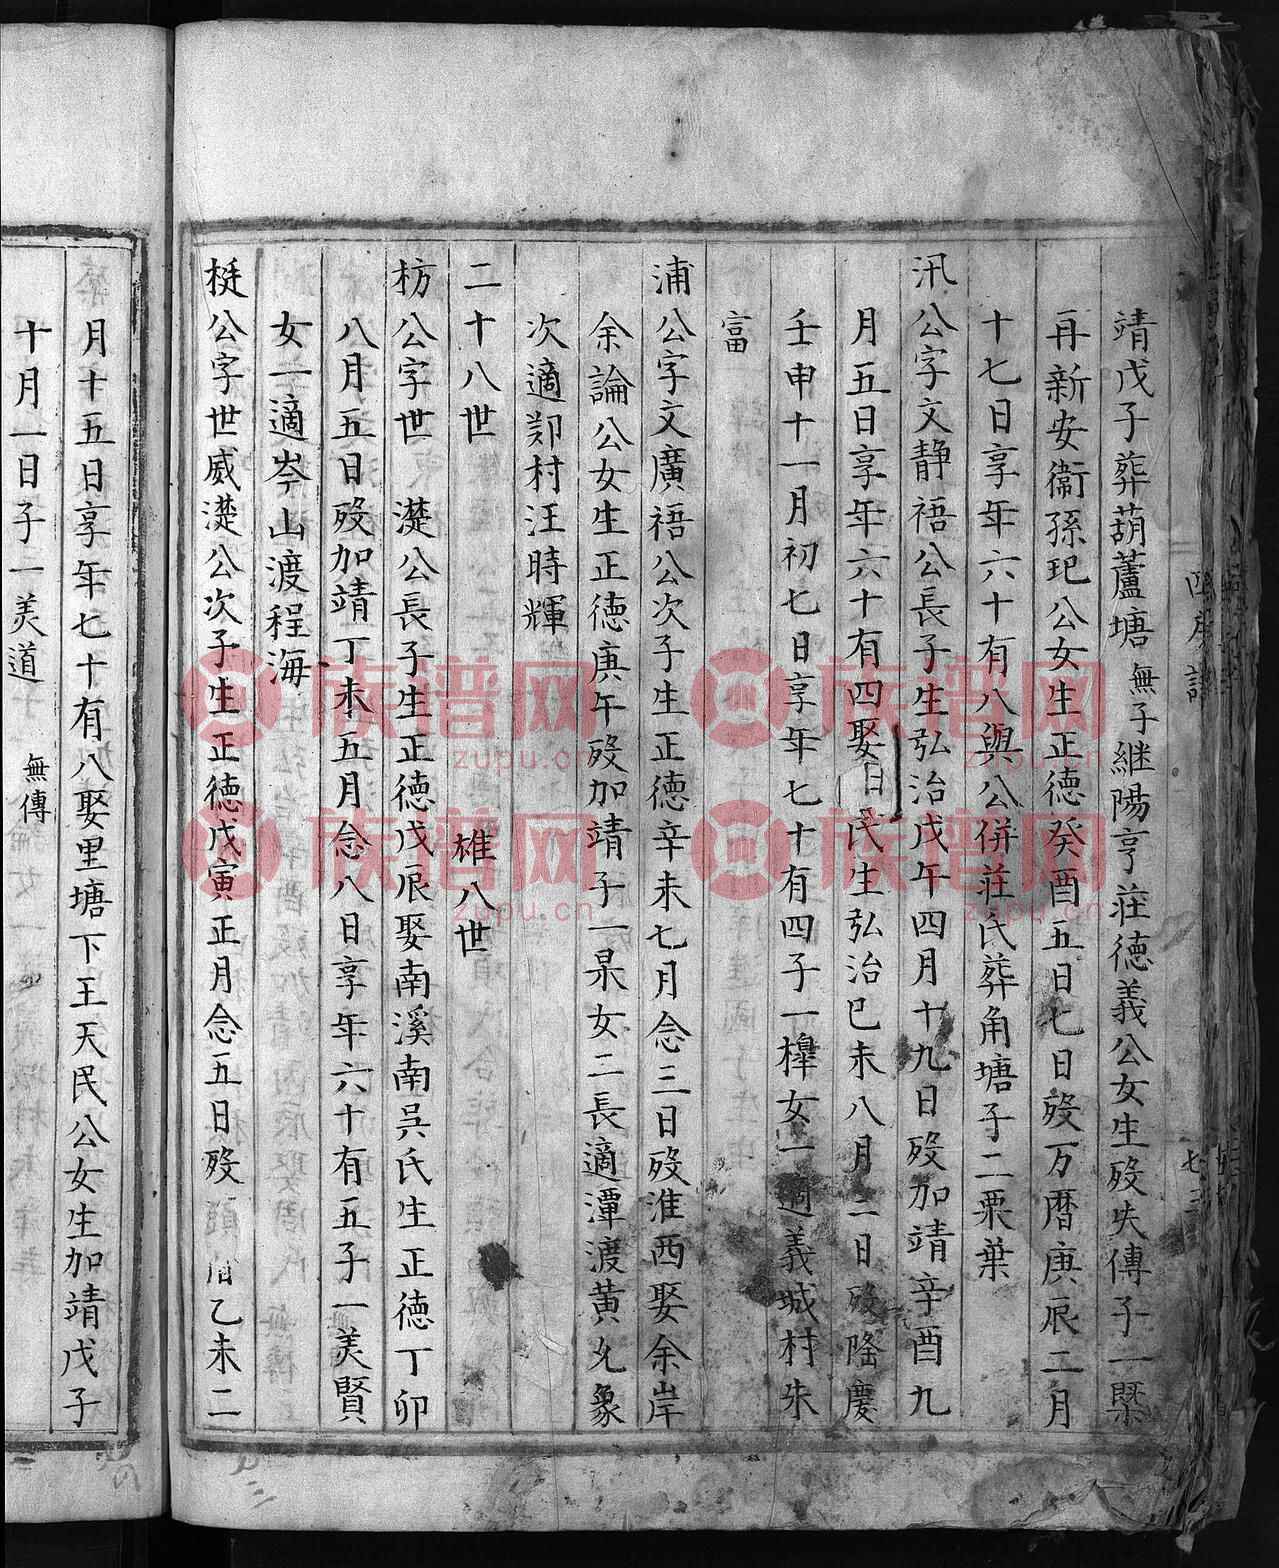 靖戊子葬葫蘆塘無子継陽亨莊德義公女生殁失傳子一縣
再新安衞孫玘公女生正德癸酉五日七日殁万曆庚辰二月
十七日享年六十有八與公併莊氏葬角塘子二栗葉
汛公字文靜禧公長子生弘治戊午四月十九日殁加靖辛酉九
月五日享年六十有四娶氏生弘治巳未八月二日殁隆慶
壬申十一月初七日享年七十有四子一樺女一適義城村朱
富
浦公字文廣禧公次子生正德辛未七月念三日殁淮西娶余岸
余論公女生正德庚午殁加靖子一杲女二長適潭渡黃允象
次適鄚村汪時輝
二十八世 雄八世
枋公字世 濋公長子生正德戊辰娶南溪南吳氏生正德丁卯
八月五日殁加靖丁未五月念八日享年六十有五子一美賢
女一適岑山渡程海
梃公字世威濋公次子生正德戊寅正月念五日殁乙未二
月十五日享年七十有八娶里塘下王天民公女生加靖戊子
十月一日子一美道 無傳
族谱网
zupu.cn
族谱网
zupu.cn
族谱网
zupu.cn
族谱网
zupu.cn